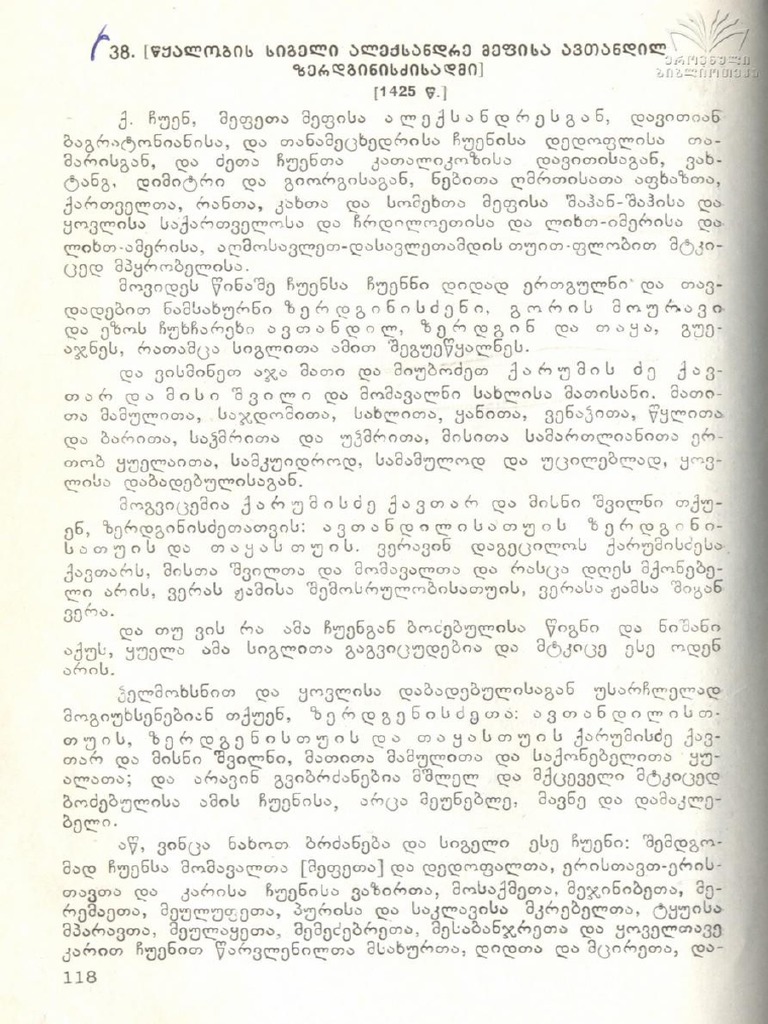 38. [წყალობის სიგელი ალექსანდრე მეფისა ავთანდილ
ზერდგინისძისადმი]
[1425 წ.]
ეროვნული
ბიბლიოთეკა
ქ. ჩუენ, მეფეთა მეფისა ალექსანდრესგან, დავითიან
ბაგრატონიანისა, და თანამეცხედრისა ჩუენისა დედოფლისა თა-
მარისგან, და ძეთა ჩუენთა კათალიკოზისა დავითისაგან, ვახ-
ტანგ, დიმიტრი და გიორგისაგან, ნებითა ღმრთისათა აფხაზთა,
ქართველთა, რანთა, კახთა და სომეხთა მეფისა შაჰან-შაჰისა და
ყოვლისა საქართველოსა და ჩრდილოეთისა და ლიხთ-იმერისა და
ლიხთ-ამერისა, აღმოსავლეთ-დასავლეთამდის თუით-ფლობით მტკი-
ცედ მპყრობელისა.
მოვიდეს წინაშე ჩუენსა ჩუენნი დიდად ერთგულნი და თავ-
დადებით ნამსახურნი ზერდგინისძენი, გორის მოურავი
და ეზოს ჩუხჩარეხი ავთანდილ, ზერდგინ და თაყა, გუე-
აჯნეს, რათამცა სიგლითა ამით შეგუეწყალნეს.
და ვისმინეთ აჯა მათი და მიუბოძეთ ქარუმის ძე ქავ-
თარ და მისი შვილი და მომავალნი სახლისა მათისანი. მათი-
თა მამულითა, საჯდომითა, სახლითა, ყანითა, ვენაჴითა, წყლითა
და ბარითა, საჴმრითა და უჴმრითა, მისითა სამართლიანითა ერ-
თობ ყუელაითა, სამკუიდროდ, სამამულოდ და უცილებლად, ყოვ-
ლისა დაბადებულისაგან.
მოგვიცემია ქარუმისძე ქავთარ და მისნი შვილნი თქუ-
ენ, ზერდგინისძეთათვის: ავთანდილისათუის ზერდგინი-
სათუის და თაყასთუის. ვერავინ დაგეცილოს ქარუმისძესა
ქავთარს, მისთა შვილთა და მომავალთა და რასცა დღეს მქონებე-
ლი არის, ვერას ჟამისა შემოსრულობისათუის, ვერასა ჟამსა შიგან
ვერა.
და თუ ვის რა ამა ჩუენგან ბოძებულისა წიგნი და ნიშანი
აქუს, ყუელა ამა სიგლითა გაგვიცუდებია და მტკიცე ესე ოდენ
არის.
ჴელმოხსნით და ყოვლისა დაბადებულისაგან უსარჩლელად
მოგიუხსენებიან თქუენ, ზერდგენისძეთა: ავთანდილისთ-
თუის, ზერდგენისთუის და თაყასთუის ქარუმისძე ქავ-
თარ და მისნი შვილნი, მათითა მამულითა და საქონებელითა ყუ-
ალათა; და არავინ გვიბრძანებია მშლელ და მქცეველი მტკიცედ
ბოძებულისა ამის ჩუენისა, არცა მეუნებლე, მავნე და დამაკლე-
ბელი.
აწ, ვინცა ნახოთ ბრძანება და სიგელი ესე ჩუენი: შემდგო-
მად ჩუენსა მომავალთა [მეფეთა] და დედოფალთა, ერისთავთ-ერის-
თავთა და კარისა ჩუენისა ვაზირთა, მოსაქმეთა, მეჯინიბეთა, მე-
რემაეთა, მეულუფეთა, პურისა და საკლავისა მკრებელთა, ტყუისა
მპარავთა, მეულაყეთა, მემეძებრეთა, მესაბანჯრეთა და ყოველთავე
კარით ჩუენით წარვლენილთა მსახურთა, დიდთა და მცირეთა, და-
118